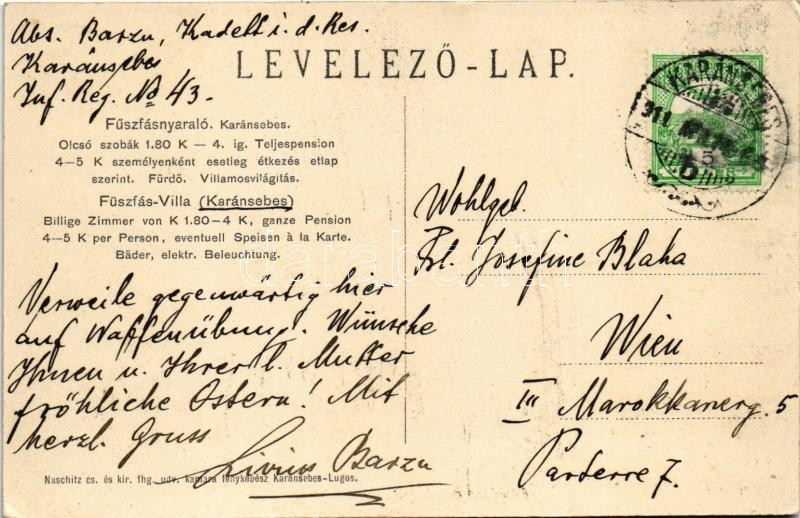 Abs. Barzu, Kadett i. d. Res.
Karánsebes
Inf. Reg. No 43.
LEVELEZŐ-LAP.
Fűszfásnyaraló. Karánsebes.
Olcsó szobák 1.80 K — 4. ig. Teljespension
4—5 K személyenként esetleg étkezés etlap
szerint. Fürdő. Villamosvilágitás.
Füszfás-Villa (Karánsebes)
Billige Zimmer von K 1.80—4 K, ganze Pension
4—5 K per Person, eventuell Speisen à la Karte.
Bäder, elektr. Beleuchtung.
Verweile gegenwärtig hier
auf Waffenübung. Wünsche
Ihnen u. Ihrer l. Mutter
fröhliche Ostern! Mit
herzl. Gruss
Livius Barzu
Naschitz cs. és kir. fhg. udv. kamara fényképész Karánsebes-Lugos.
KARÁNSEBES
Wohlgeb.
Frl. Josefine Blaha
Wien
III Marokkanerg. 5
Parterre 7.
darabanth.com